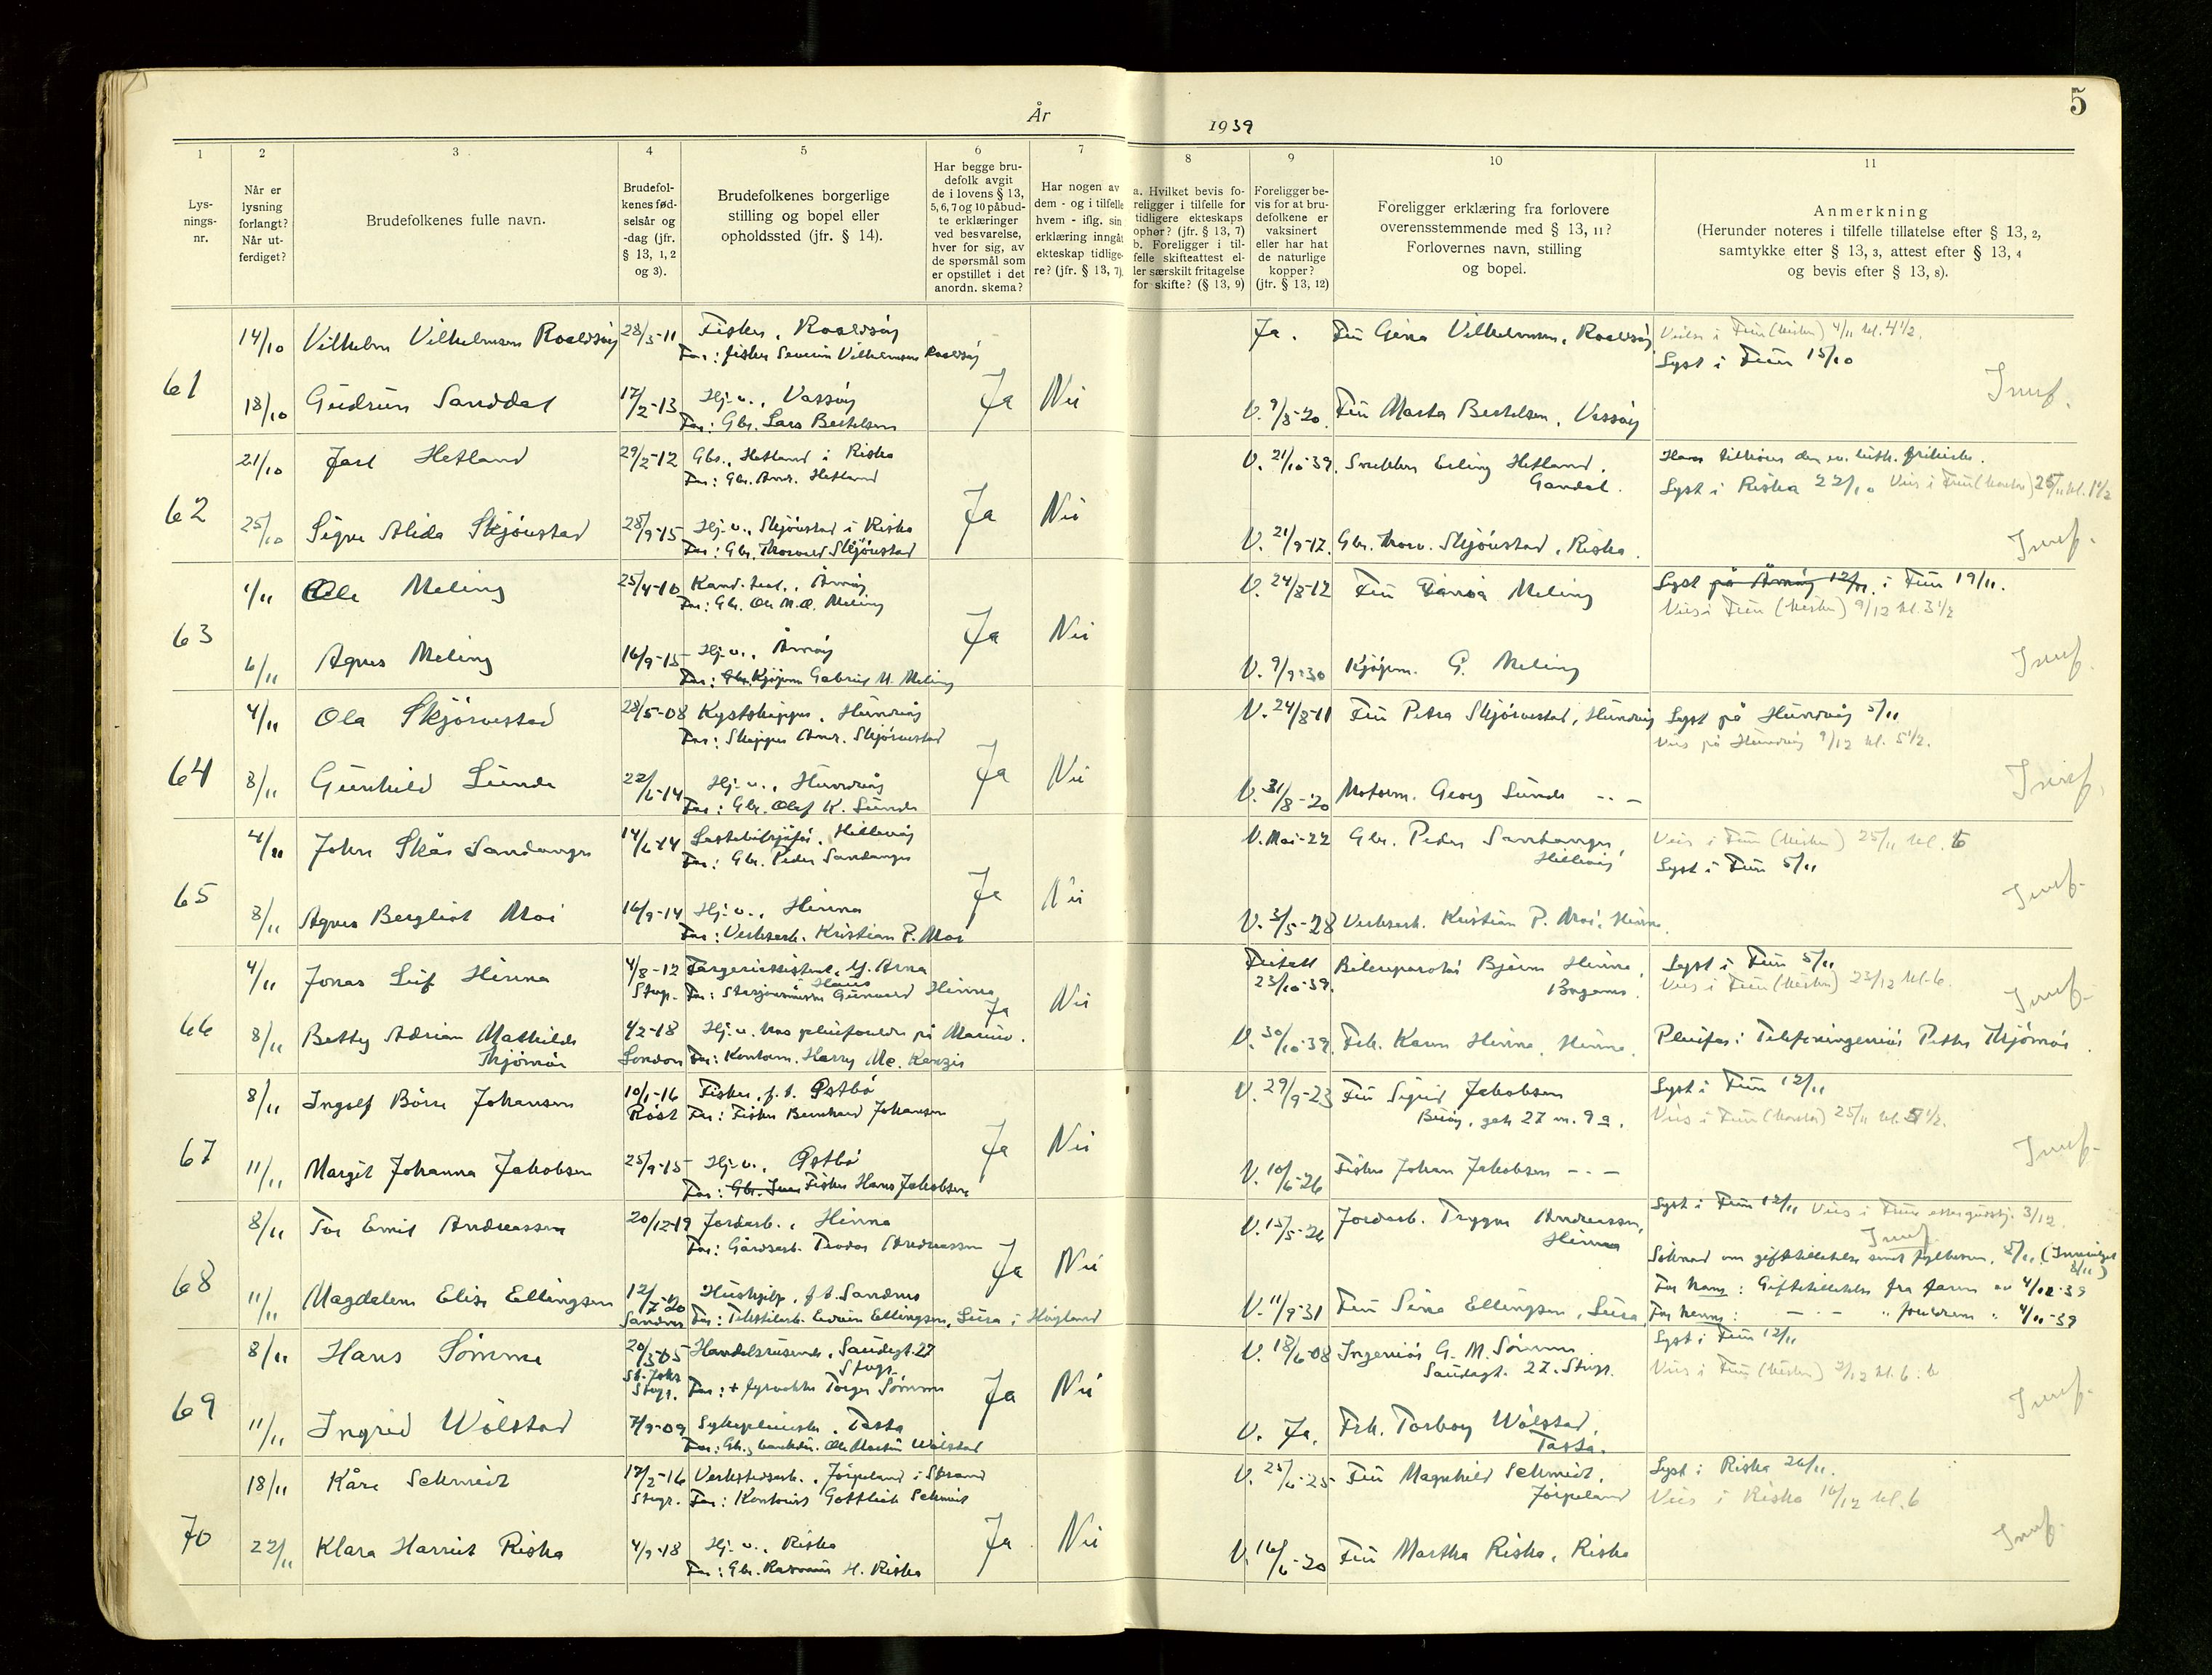 5
År 1939
1
2
3
4
5
6
7
8
9
10
11
Lys-
nings-
nr.
Når er
lysning
forlangt?
Når ut-
ferdiget?
Brudefolkenes fulle navn.
Brudefol-
kenes fød-
selsår og
-dag (jfr.
§ 13, 1, 2
og 3).
Brudefolkenes borgerlige
stilling og bopel eller
opholdssted (jfr. § 14).
Har begge bru-
defolk avgit
de i lovens § 13,
5, 6, 7 og 10 påbud-
te erklæringer
ved besvarelse,
hver for sig, av
de spørsmål som
er opstillet i det
anordn. skema?
Har nogen av
dem - og i tilfelle
hvem - iflg. sin
erklæring inngåt
ekteskap tidlige-
re? (jfr. § 13, 7).
a. Hvilket bevis fo-
religger i tilfelle for
tidligere ekteskaps
ophør? (jfr. § 13, 7)
b. Foreligger i til-
felle skifteattest el-
ler særskilt fritagelse
for skifte? (§ 13, 9)
Foreligger be-
vis for at bru-
defolkene er
vaksinert
eller har hat
de naturlige
kopper?
(jfr. § 13, 12)
Foreligger erklæring fra forlovere
overensstemmende med § 13, 11?
Forlovernes navn, stilling
og bopel.
Anmerkning
(Herunder noteres i tilfelle tillatelse efter § 13, 2,
samtykke efter § 13, 3, attest efter § 13, 4
og bevis efter § 13, 8).
61
14/10 Vilhelm Vilhelmsen Roaldsøy 28/3-11 Fisker, Roaldsøy
Far: fisker Severin Vilhelmsen Roaldsøy
Ja. Fru Gina Vilhelmsen, Roaldsøy
Vies i Frue 4/11 kl. 4 1/2.
Lyst i Frue 15/10
18/10 Gudrun Sanddal 17/2-13 Hj. v., Vassøy
Far: Gbr. Lars Bertelsen
Ja Nei
V. 9/3-20. Fru Marta Bertelsen, Vassøy
62
21/10 Jarl Hetland 29/2-12 Gbr., Hetland i Riska
Far: Gbr. Andr. Hetland
V. 21/10-39. Snekker Erling Hetland,
Gandal.
Ham tilhører den ev. luth. frikirke.
Lyst i Riska 22/10 Vies i Frue 25/11 kl. 1 1/2
25/10 Signe Alida Skjørestad 28/9-15 Hj. v., Skjørestad i Riska
Far: Gbr. Thorvald Skjørestad
Ja Nei
V. 21/9-17. Gbr. Thorv. Skjørestad, Riska.
63
1/11 Ole Meling 25/4-10 Kand. teol., Åmøy
Far: Gbr. Ole M. O. Meling
V. 24/8-12 Fru Meling
Lyst på Åmøy 12/11. i Frue 19/11.
Vies i Frue 9/12 kl. 3 1/2
6/11 Agnes Meling 16/9-15 Hj. v., Åmøy
Far: Gbr. Kjøpm Gabriel M. Meling
Ja Nei
V. 9/9-30 Kjøpm. G. Meling
64
4/11 Ola Skjørvestad 28/5-08 Kystskipper, Hundvåg
Far: Skipper Andr. Skjørvestad
V. 24/8-11 Fru Petra Skjørvestad, Hundvåg
Lyst på Hundvåg 5/11
Vies på Hundvåg 9/12 kl. 5 1/2.
8/11 Gunhild Lunde 22/6-14 Hj. v., Hundvåg
Far: Gbr. Olaf K. Lunde
Ja Nei
V. 31/8-20 Motorm. Georg Lunde - - -
65
4/11 John Skår Sandanger 14/6-14 Lastebilsjåfør, Hillevåg
Far: Gbr. Peder Sandanger
V. Mai-22 Gbr. Peder Sandanger,
Hillevåg
Vies i Frue 25/11 kl. 6
Lyst i Frue 5/11
8/11 Agnes Bergliot Moi 16/9-14 Hj. v., Hinna
Far: Verksarb. Kristian P. Moi
Ja Nei
V. 3/5-28 Verksarb. Kristian P. Moi, Hinna.
66
4/11 Jonas Leif Hinna 4/8-12 Fargeriassistent, Y. Arna
Stvgr. Far: Stasjonsmester Gunvald Hinna
Fritatt
23/10-39. Bilreparatør Bjørn Hinna,
Lyst i Frue 5/11
Vies i Frue 23/12 kl. 6.
8/11 Betty Adrian Mathilde
Thjømøe 4/2-18 Hj. v. hos pleieforeldre på Mariero.
London Far: Kontorm. Harry Mc. Kenzie
Ja Nei
V. 30/10-39. Frk. Karen Hinna, Hinna.
Pleiefar: Telefoningeniør Petter Thjømøe.
67
8/11 Ingolf Børre Johansen 10/1-16 Fisker, f. t. Østbø
Røst Far: Fisker Bernhard Johansen
V. 29/9-23 Fru Sigrid Jakobsen
Buøy, gate 27 nr. 9 a.
Lyst i Frue 12/11
Vies i Frue 25/11 kl. 5 1/2.
11/11 Margit Johanna Jakobsen 25/9-15 Hj. v., Østbø
Far: Fisker Hans Jakobsen
Ja Nei
V. 10/6-26 Fisker Johan Jakobsen - - -
68
8/11 Tor Emil Andreassen 20/12-19 Jordarb., Hinna
Far: Gårdsarb. Teodor Andreassen
V. 15/5-26 Jordarb. Trygve Andreassen,
Hinna
Lyst i Frue 12/11 Vies i Frue etter gudstj. 3/12.
Søknad om giftetillatelse sendt fylkesm. 8/11. (Innvilget
8/11)
11/11 Magdalene Elise Ellingsen 12/7-20 Hushjelp, f. t. Sandnes
Sandnes Far: Tekstilarb. Edvin Ellingsen, Lura i Høyland
Ja Nei
V. 11/9-31 Fru Sina Ellingsen, Lura
For ham: Giftetillatelse fra faren av 4/11-39
For henne: - - - " foreldrene " 4/11-39
69
8/11 Hans Sømme 20/3-05 Handelsreisende, Saudegt. 27
Stvgr.
St. Joh.
Stvgr. Far: + fyrvokter Torger Sømme
V. 18/6-08 Ingeniør G. M. Sømme.
Saudagt. 27. Stvgr.
Lyst i Frue 12/11
Vies i Frue 2/12 kl. 6.
11/11 Ingrid Wølstad 7/9-09 Sykepleierske, Tasta
Far: Gbr., Ole Martin Wølstad
Ja Nei
V. Ja. Frk. Torborg Wølstad,
Tasta.
70
18/11 Kåre Schmidt 17/2-16 Verkstedsarb., Jørpeland i Strand
Stvgr. Far: Kontorist Gottlieb Schmidt
V. 25/6-25 Fru Magnhild Schmidt,
Jørpeland
Lyst i Riska 26/11.
Vies i Riska 16/12 kl. 6
22/11 Klara Harriet Riska 4/9-18 Hj. v., Riska
Far: Gbr. Rasmus H. Riska
Ja Nei
V. 16/6-20 Fru Martha Riska, Riska